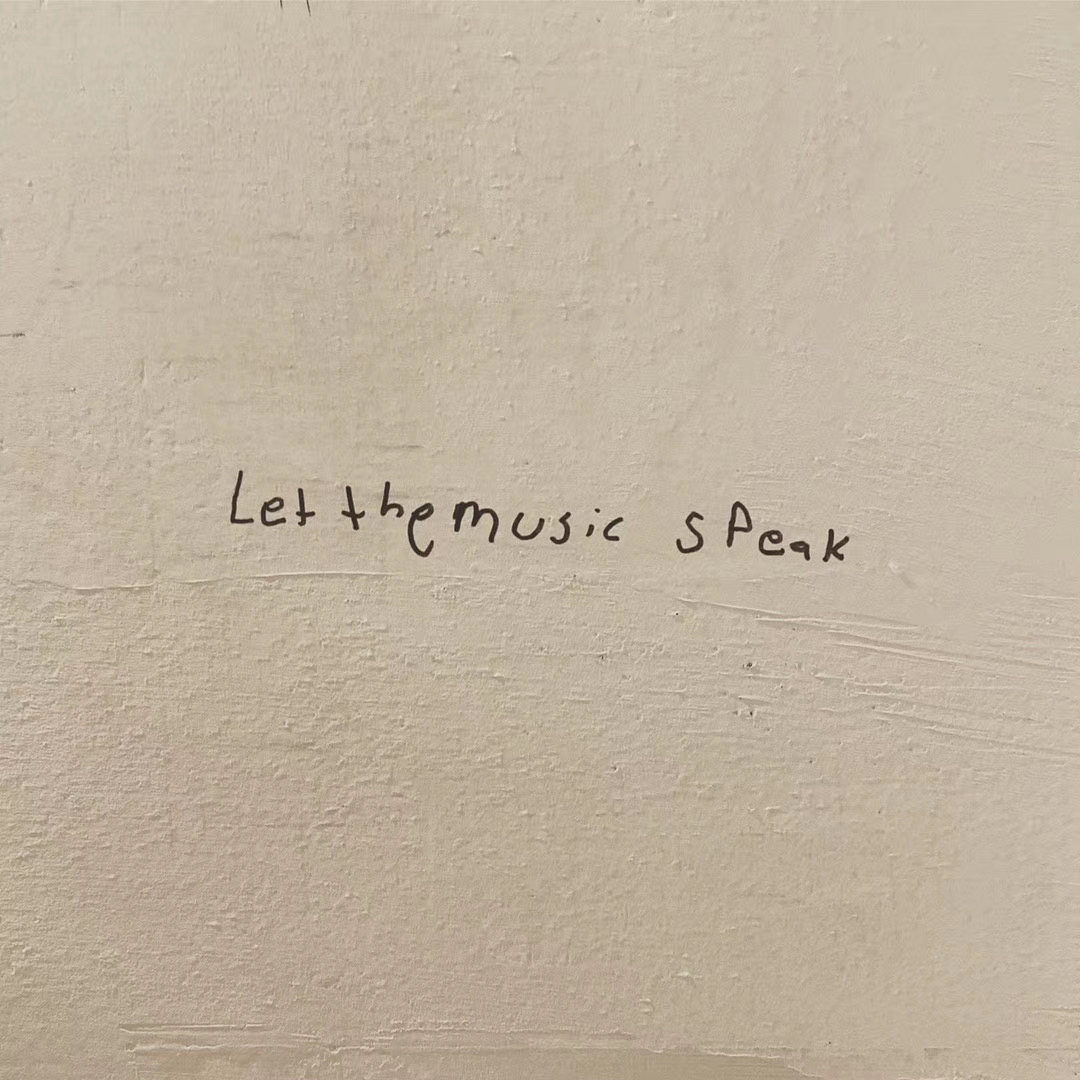 Let the music speak